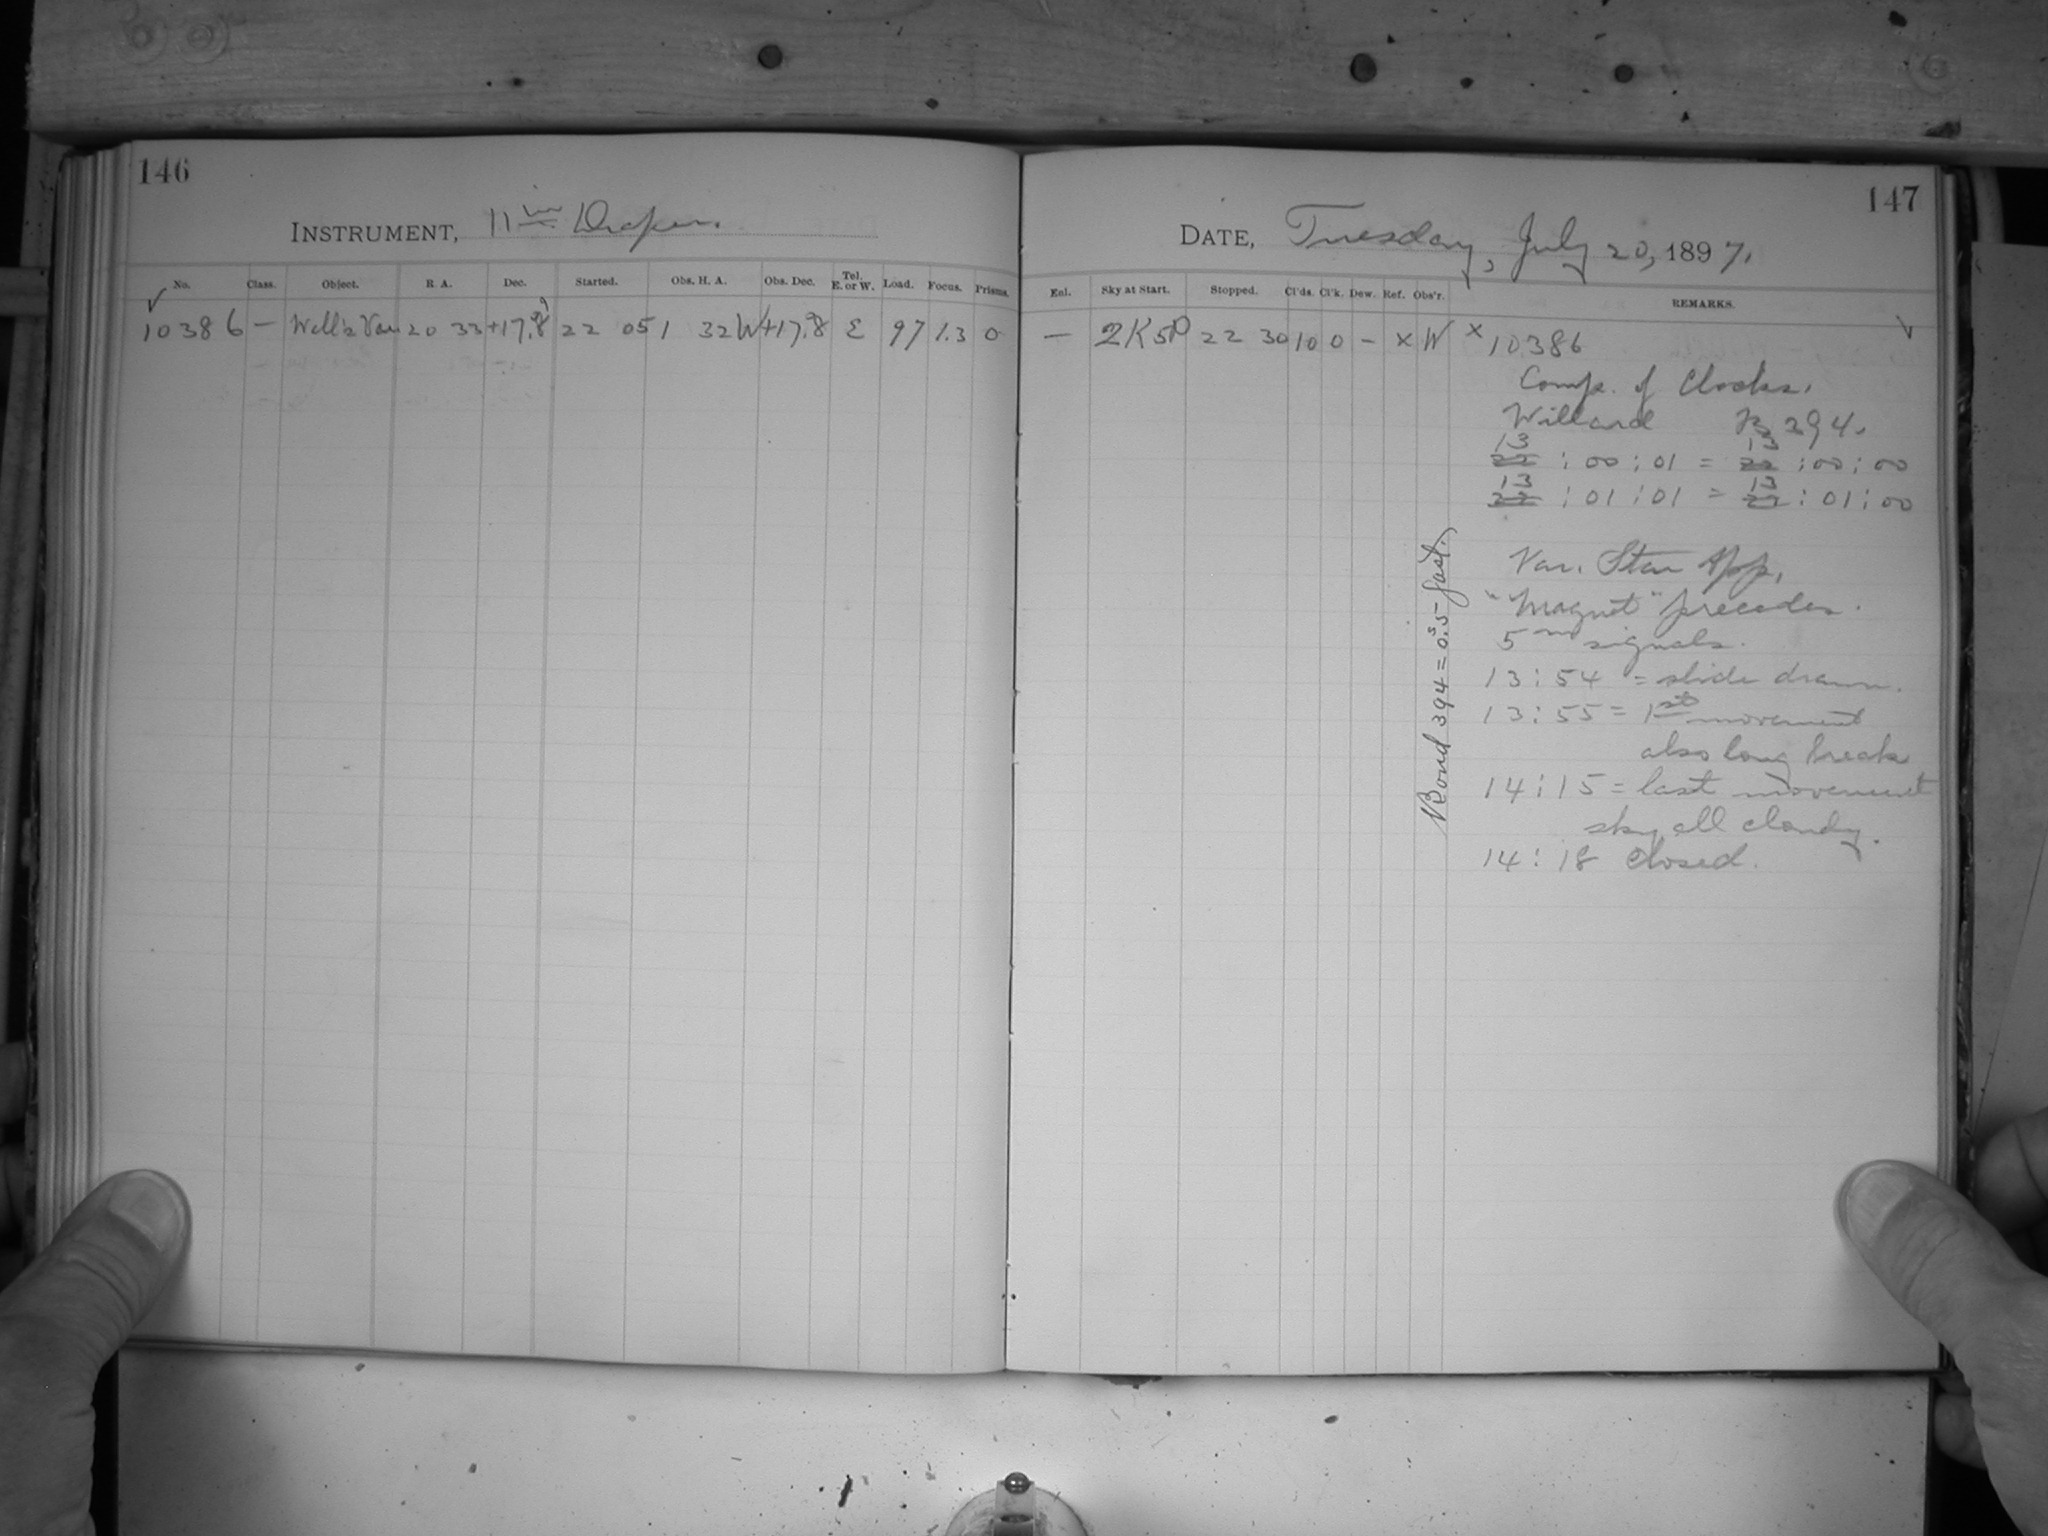 146
INSTRUMENT, 11 in Draper.
No. Class. Object. R. A. Dec. Started. Obs. H. A. Obs. Dec. Tel. E. or W. Load. Focus. Prisms.
✓
10386 — Wells Var 20 33 +17.8 22 05 1 32W +17.8 E 97 1.3 0
147
DATE, Tuesday, July 20, 1897.
Enl. Sky at Start. Stopped. Cl'ds. Cl'k. Dew. Ref. Obs'r. REMARKS.
— 2K5P 22 30 10 0 – × W × 10386 ✓
Comp. of Clocks.
Willard B 394.
13 13
22 : 00 : 01 = 22 : 00 : 00
13 13
22 : 01 : 01 = 22 : 01 : 00
Bond 394 = 0s.5 fast.
Var. Star App.
"Magnet" precedes.
5 m signals.
13 : 54 = slide drawn.
13 : 55 = 1st movement
also long break
14 : 15 = last movement
sky all cloudy.
14 : 18 closed.